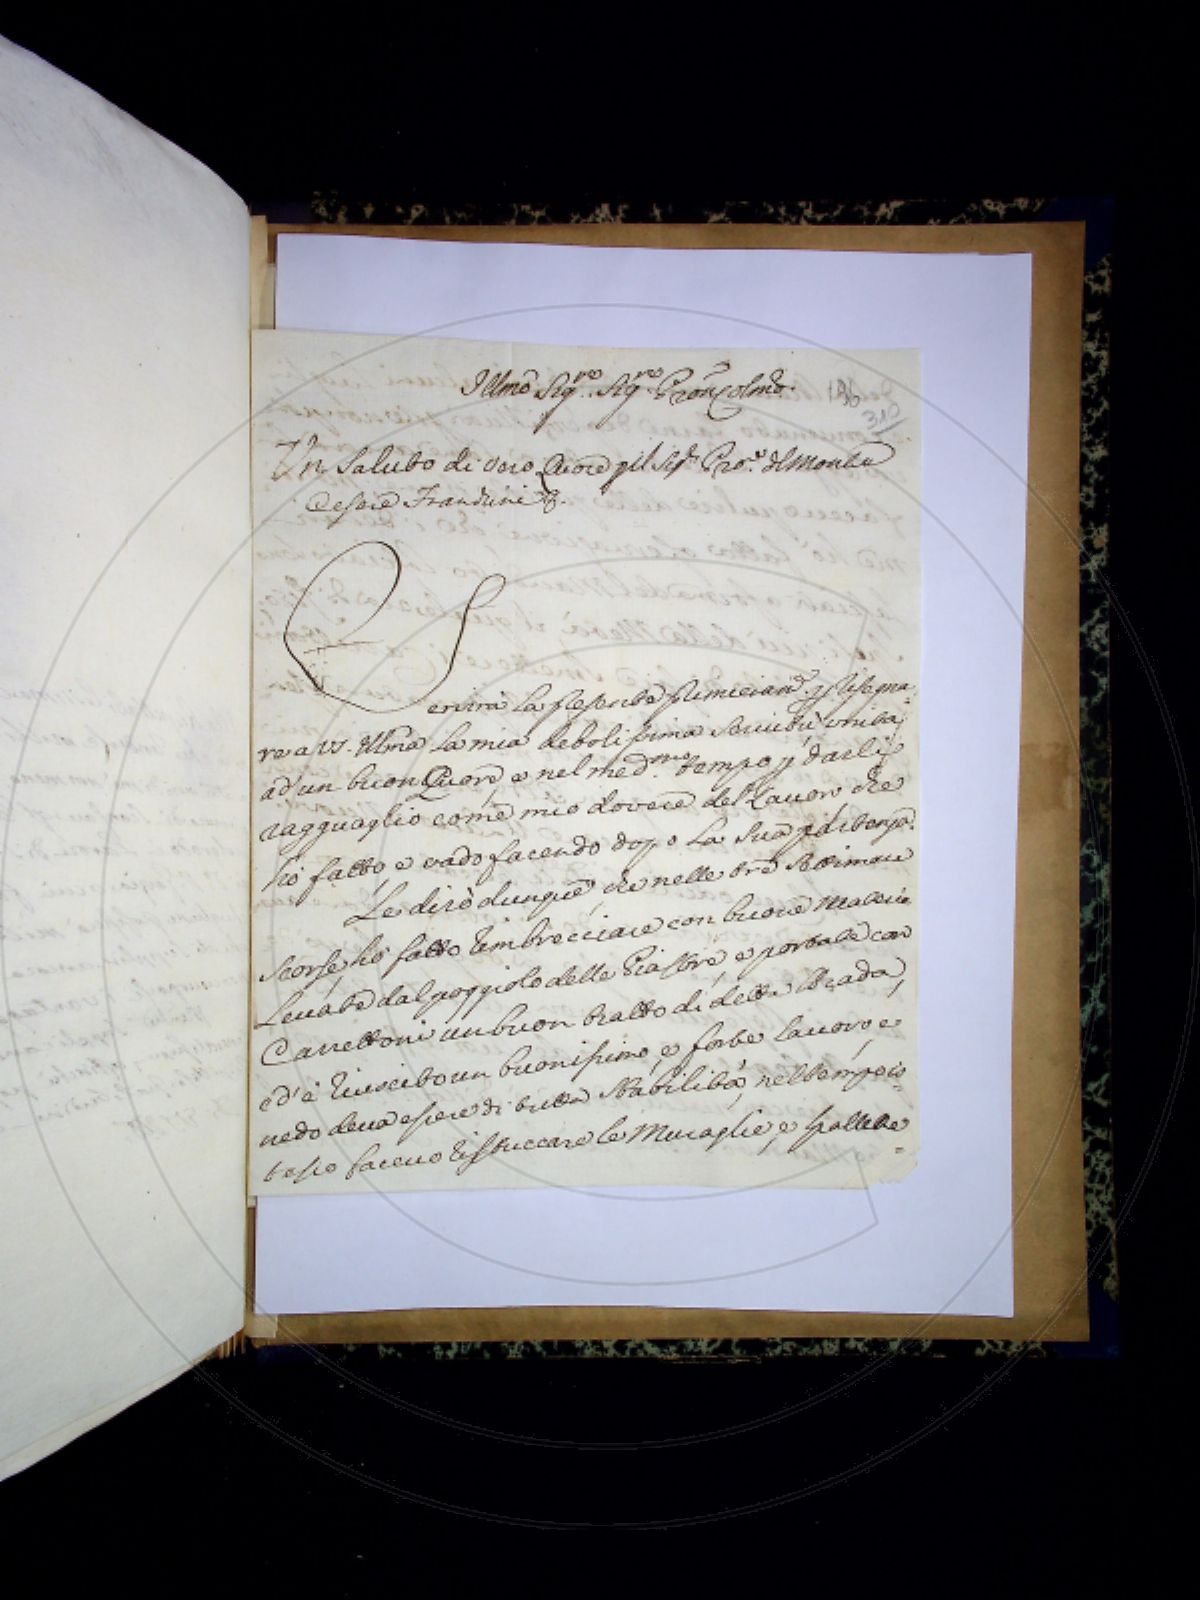 Illmo Sigro Sigro Pron Colmo
196
310
Un Saluto di vero Cuore pil Sigr Pro. Montu
Cesare Frandini
Servirà la presente primieram. p rasegna
re a VS. Illma la mia debolissima Servitù unita
ad' un buon Cuore, e nel med.mo tempo p darli
ragguaglio come mio dovere del Lavoro che
hò fatto, e vado facendo dopo la sua partenza.
Le dirò dunque, che nelle tre Settimane
scorse, hò fatto Imbrecciare con buone Materie
Levate dal poggiolo delle Piastre e portate con
Carrettoni un buon tratto di detta Strada,
ed' è riuscito un buonissimo, e forte Lavoro, e
credo deva essere di tutta Stabilità, nel tempo is=
tesso facevo ristuccare le Muraglie, e spallette